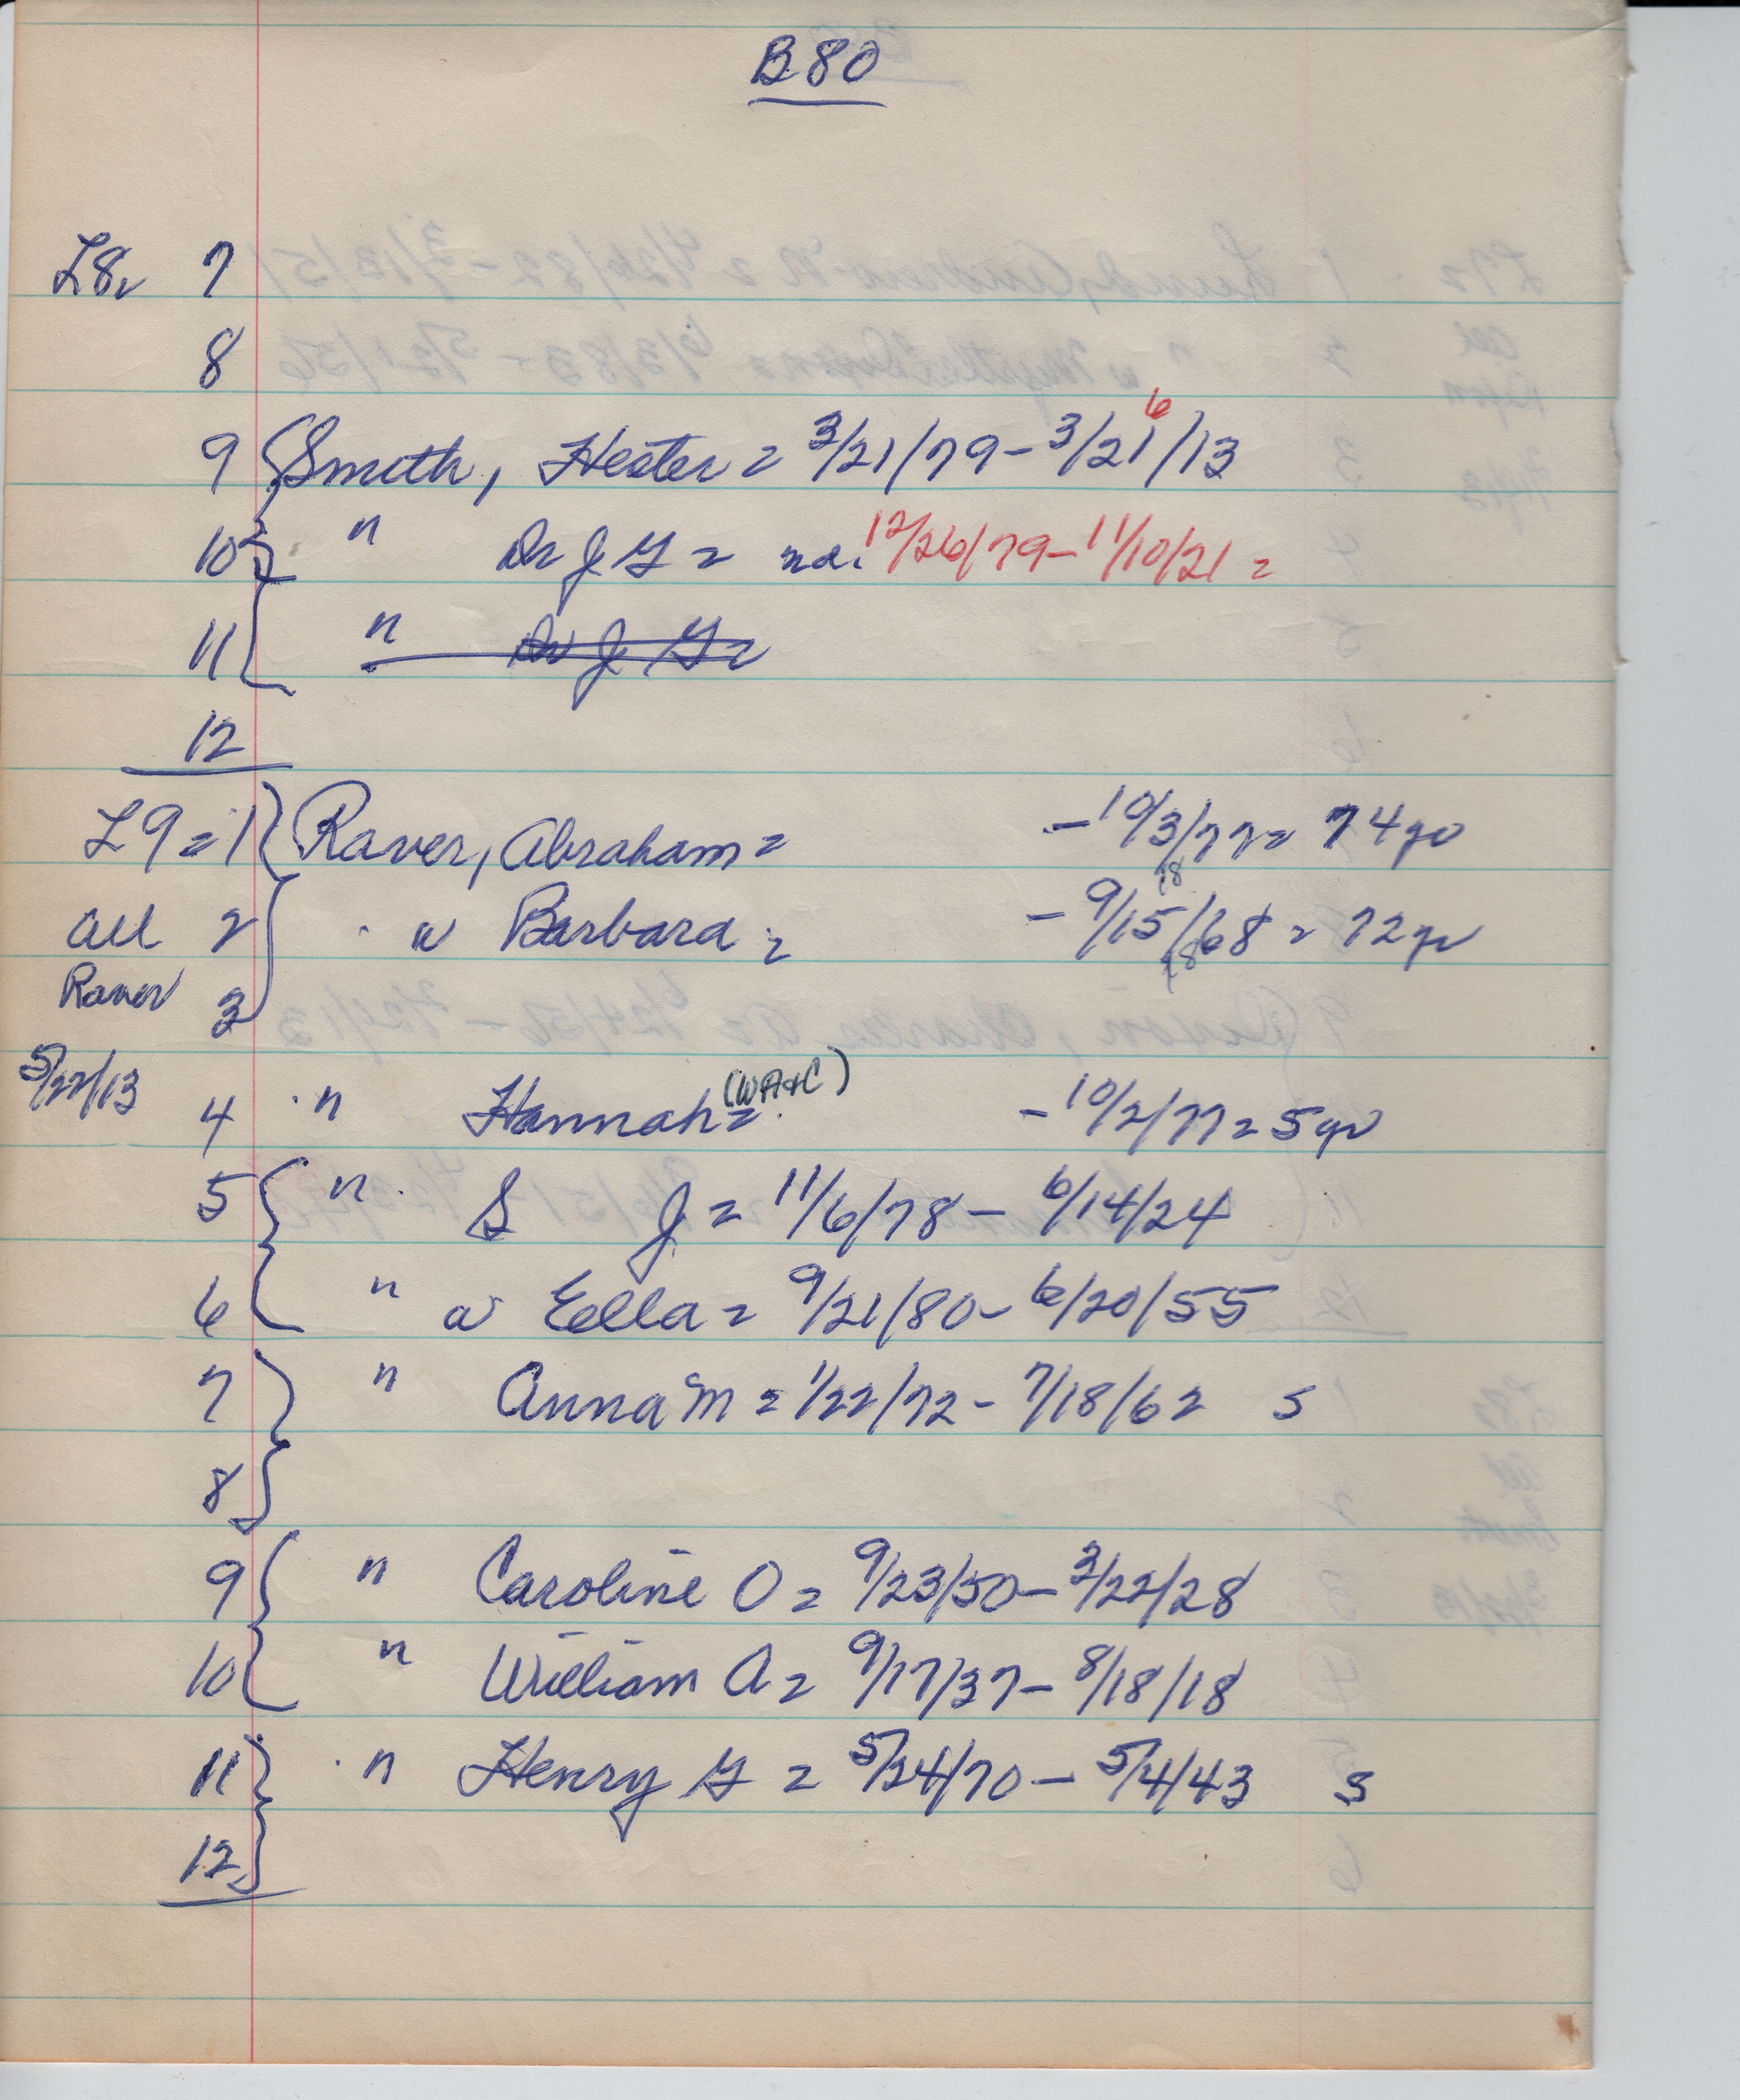 B80
L8= 7
8
9 Smith, Hester = 3/21/79 - 3/21/13
6
10 " Dr J G = nd. 12/26/79 - 11/10/21 =
11 " Dr J G =
12
L9 = 1 Raver, Abraham = - 10/3/77 = 74yo
18
All 2 w Barbara = - 9/15/68 = 72yr
18
Raver 3
5/22/13
4 " Hannah = (WA+C) - 10/2/77 = 5yr
5 " S J = 11/6/78 - 6/14/24
6 " w Ella = 9/21/80 - 6/20/55
7 " Anna M = 1/22/72 - 7/18/62 s
8
9 " Caroline O = 9/23/50 - 3/22/28
10 " William A = 9/17/37 - 8/18/18
11 " Henry G = 5/24/70 - 5/4/43 s
12